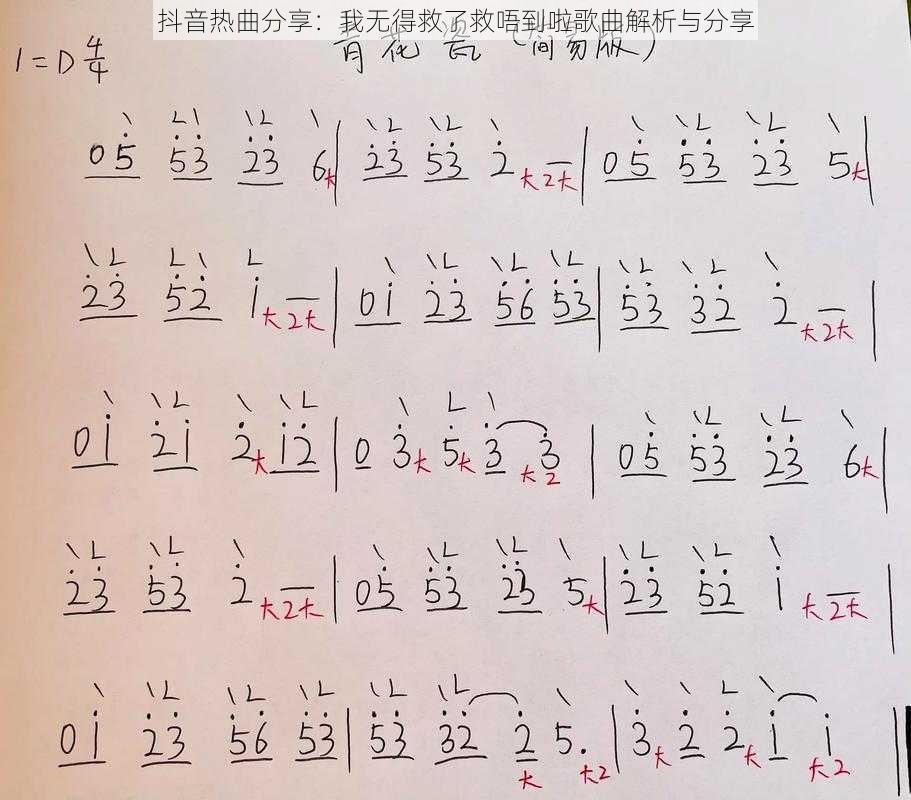 抖音热曲分享：我无得救了救唔到啦歌曲解析与分享
青花瓷（简易版）
1=D 4/4
05 53 23 6大| 23 53 2大2大| 05 53 23 5大|
23 52 1大2大| 01 23 56 53| 53 32 2大2大|
01 21 2大12| 0 3大 5大 3 3大2| 05 53 23 6大|
23 53 2大2大| 05 53 23 5大| 23 52 1大2大|
01 23 56 53| 53 32 2大 5.大2| 3大 2 2大 1 1大2||